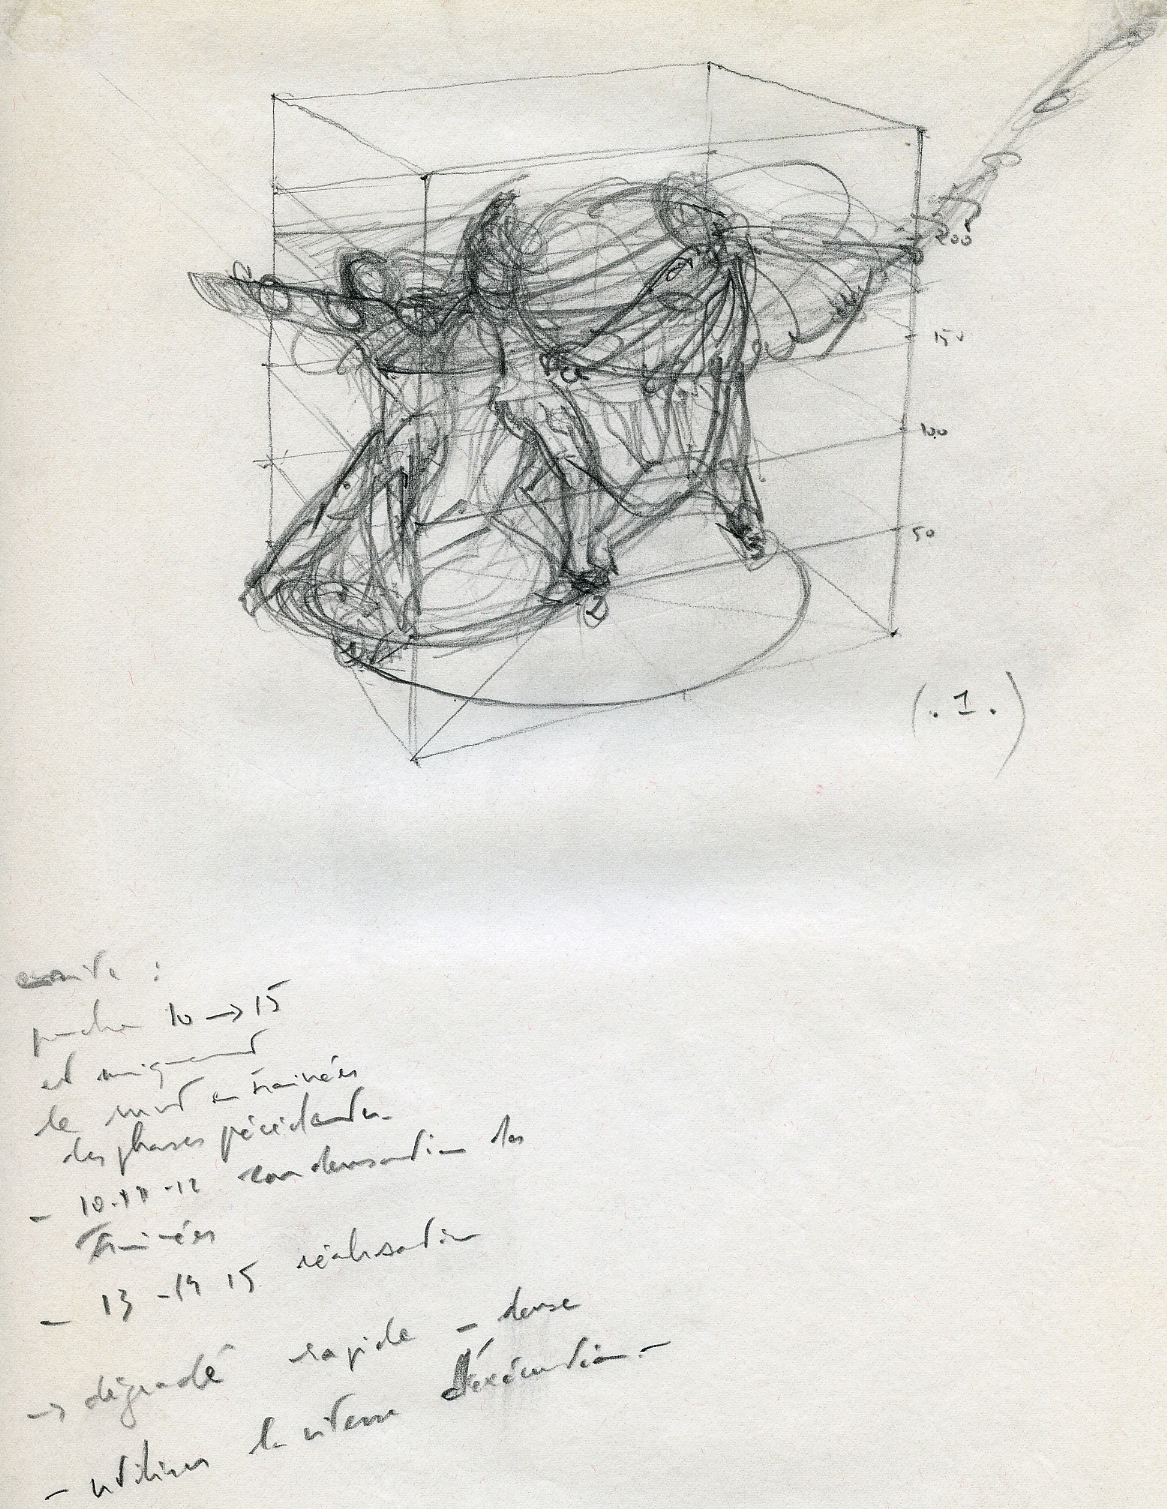 200
150
100
50
(.1.)
ensuite :
prendre 10 → 15
et uniquement
le mvt en trainées
les phases précédentes.
- 10-11-12 condensation des
trainées
- 13 -14 15 réalisation
→ dégradé rapide - dense
- utiliser la vitesse d'exécution.-